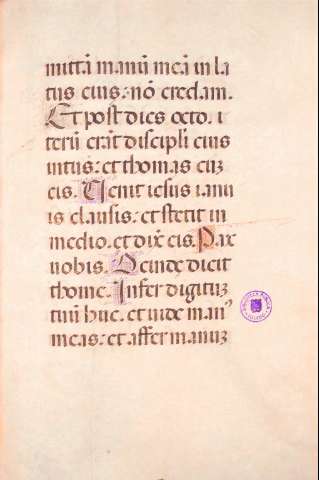 mittā manū meā in la
tus eius: nō credam.
Et post dies octo. i
terū erāt discipli eius
intus: et thomas cuʒ
eis. Uenit iesus ianu
is clausis: et stetit in
medio. et dix̄ eis. Pax
uobis. Deinde dicit
thome. Infer digituʒ
tuū huc. et uide manꝰ
meas: et affer manuʒ